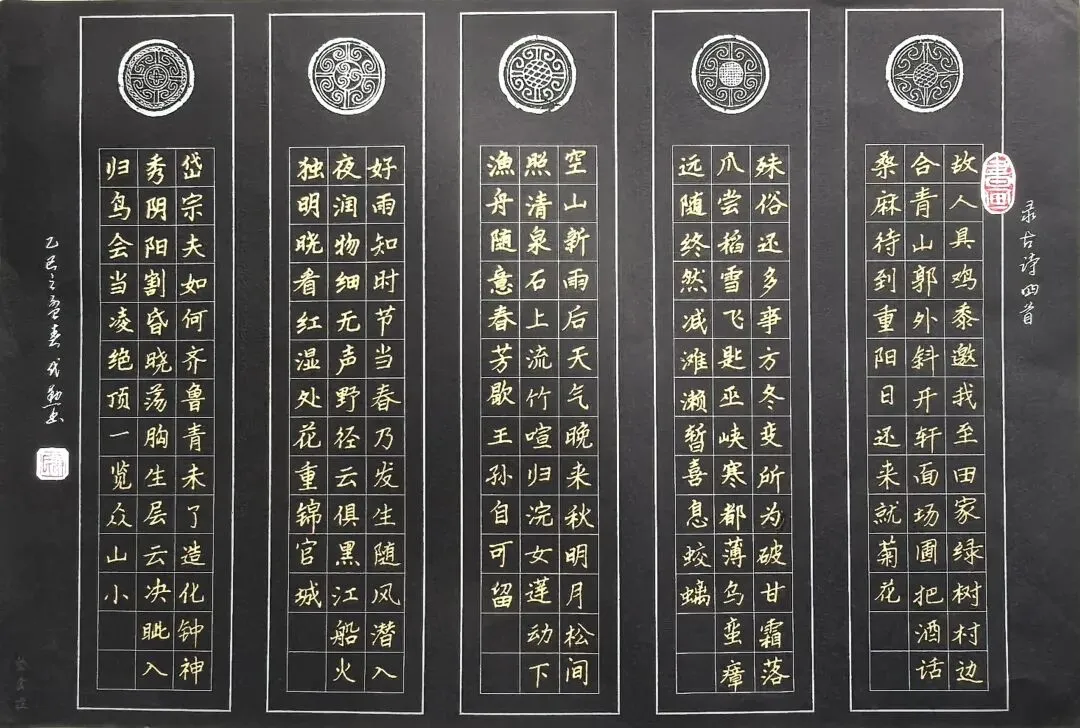 录古诗四首
故人具鸡黍邀我至田家绿树村边
合青山郭外斜开轩面场圃把酒话
桑麻待到重阳日还来就菊花
殊俗还多事方冬变所为破甘霜落
爪尝稻雪飞匙巫峡寒都薄乌蛮瘴
远随终然减滩濑暂喜息蛟螭
空山新雨后天气晚来秋明月松间
照清泉石上流竹喧归浣女莲动下
漁舟随意春芳歇王孙自可留
好雨知时节当春乃发生随风潜入
夜润物细无声野径云俱黑江船火
独明晓看红湿处花重锦官城
岱宗夫如何齐鲁青未了造化钟神
秀阴阳割昏晓荡胸生层云决眦入
归鸟会当凌绝顶一览众山小
乙巳之孟春